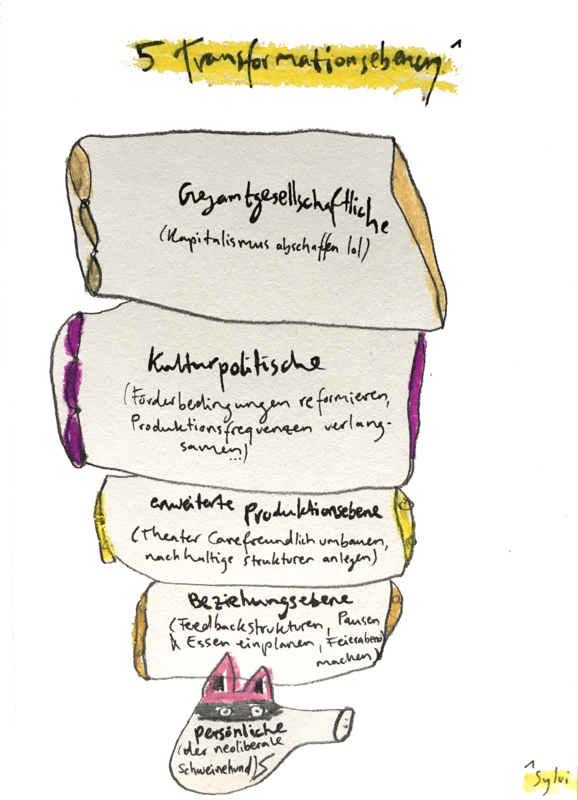 5 Transformationsebenen
Gesamtgesellschaftliche
(Kapitalismus abschaffen lol)
Kulturpolitische
(Förderbedingungen reformieren,
Produktionsfrequenzen verlang-
samen...)
erweiterte Produktionsebene
(Theater Carefreundlich umbauen,
nachhaltige Strukturen anlegen)
Beziehungsebene
(Feedbackstrukturen, Pausen
& Essen einplanen, Feierabend
machen)
persönliche
(der neoliberale
Schweinehund)
Sylvi